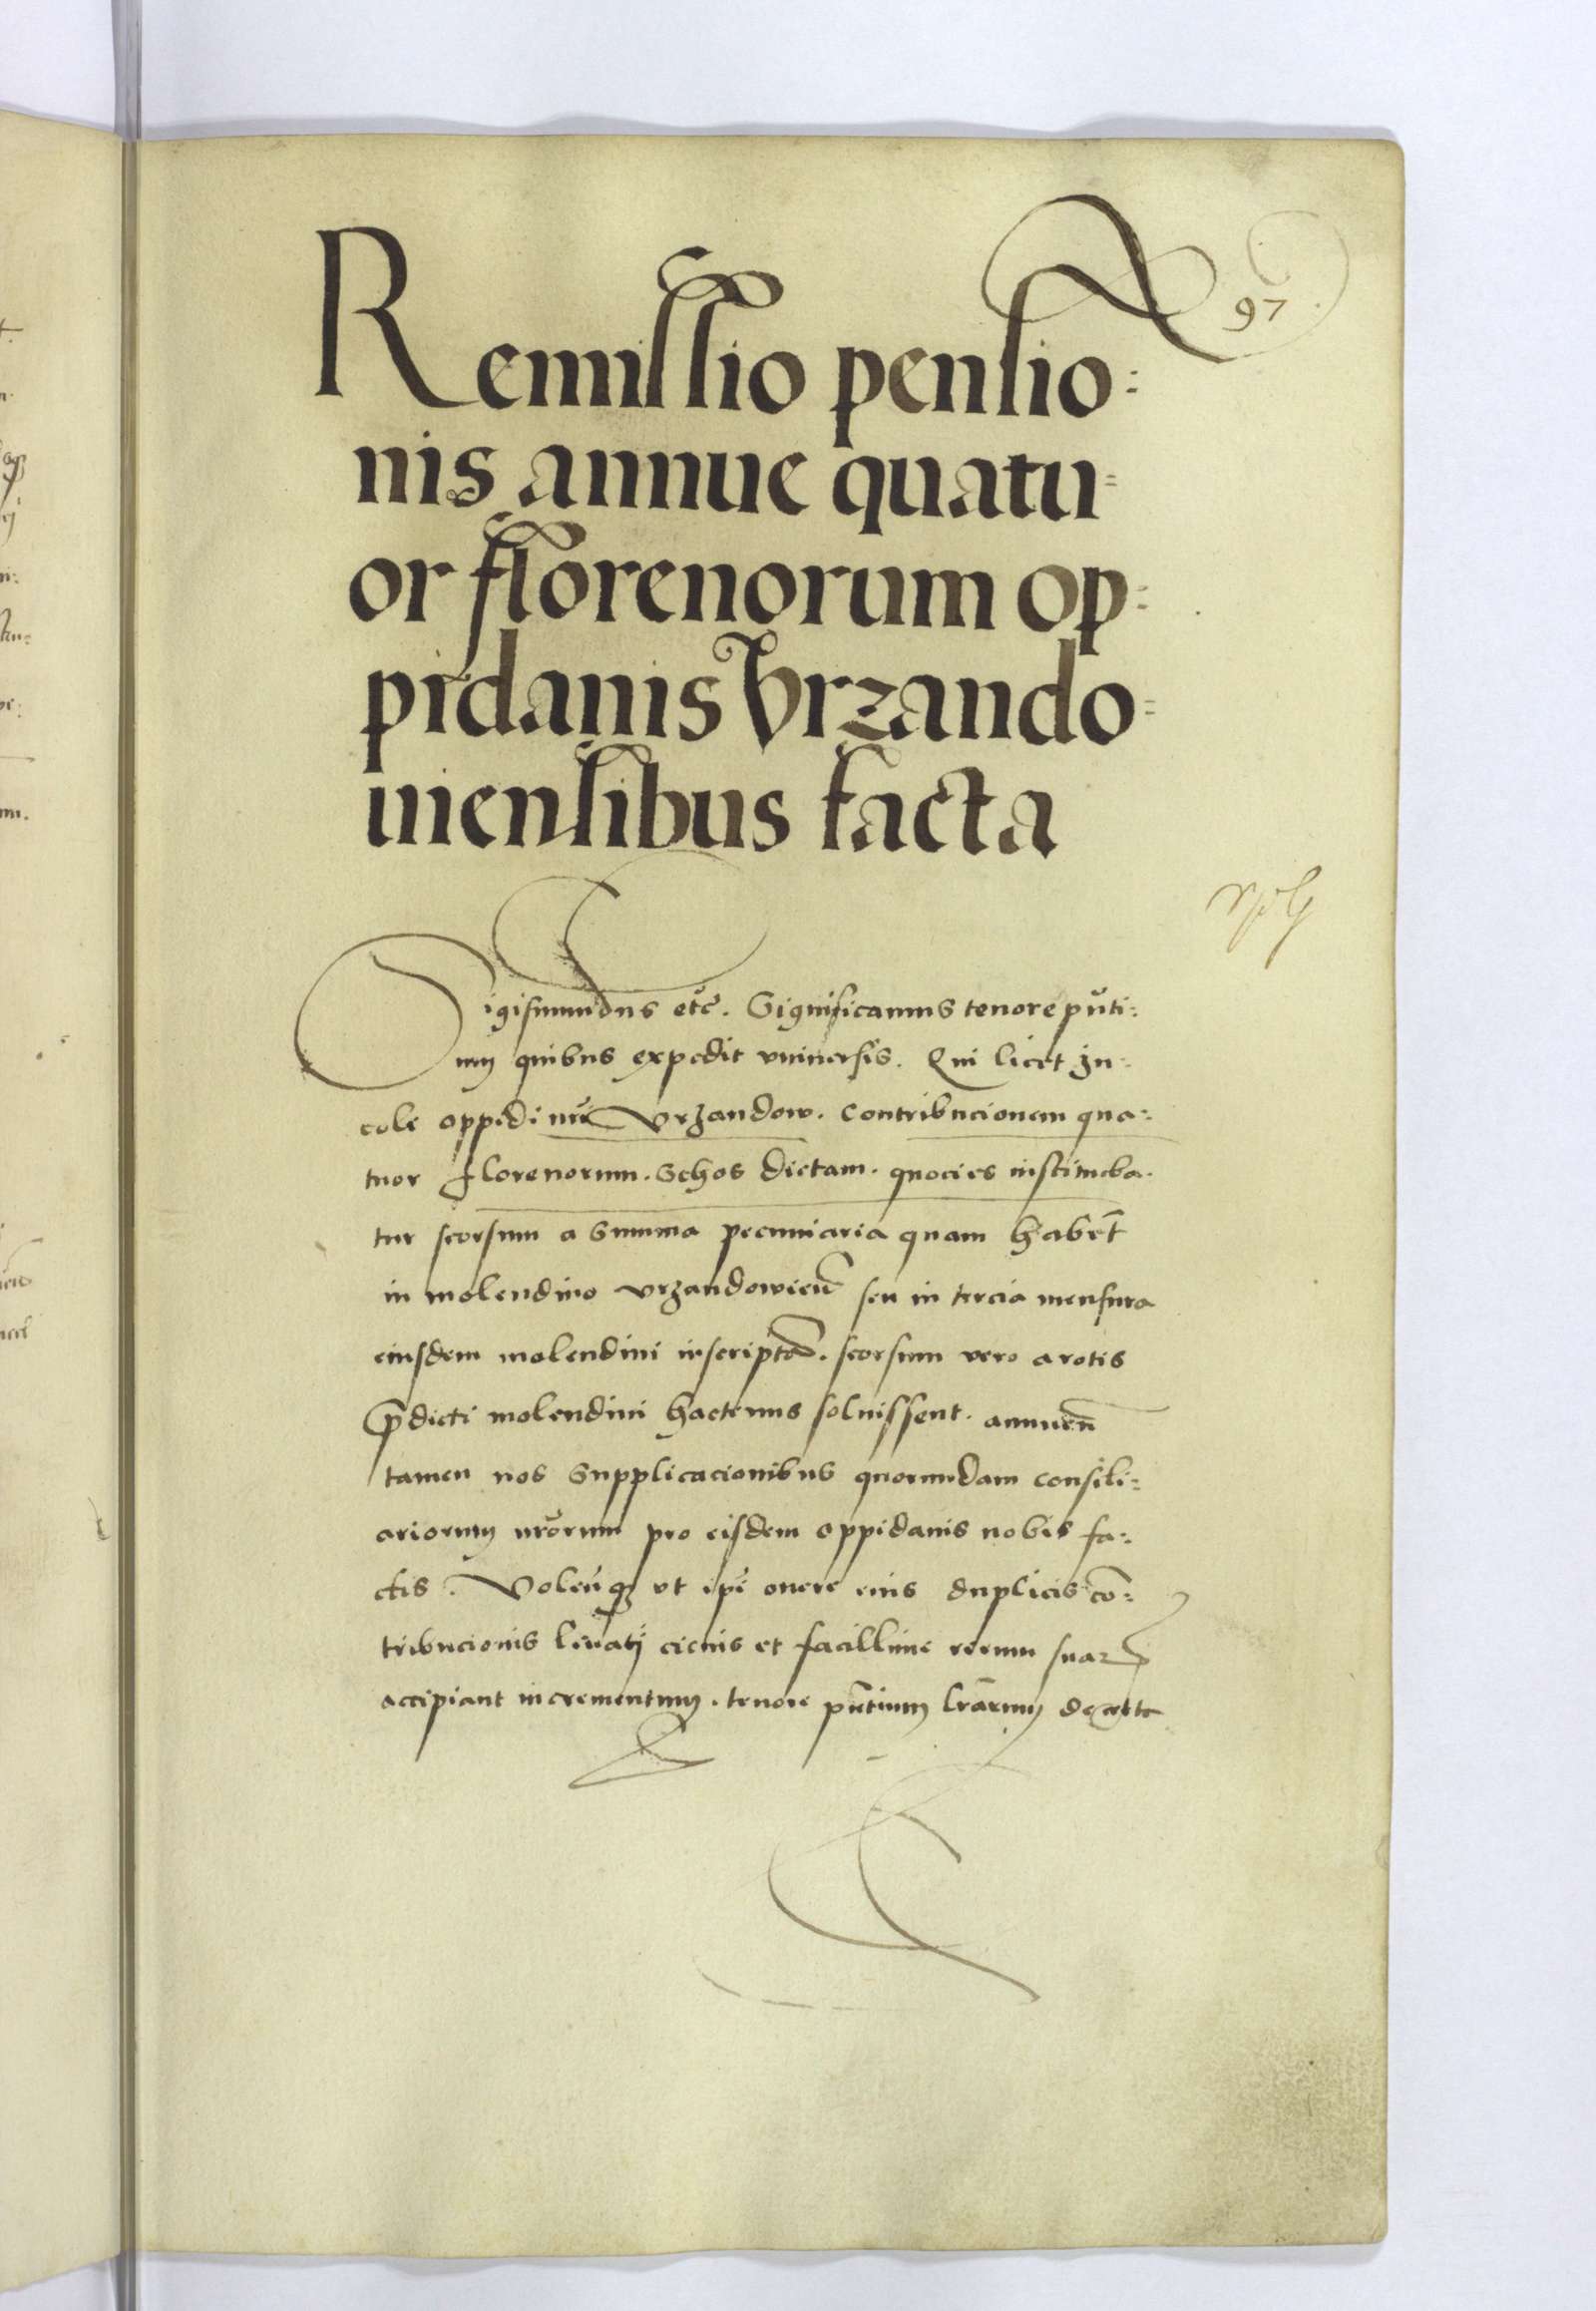 97
Remissio pensio=
nis annue quatu=
or florenorum op=
pidanis Vrzando=
uiensibus facta
Sigismundus etc̃. Significamus tenore pñti=
um quibus expedit vniuersis. Qui licet In=
cole oppidi nrĩ Vrzandow. contribucionem qua=
tuor florenorum. Schos dictam. quocies institueba=
tur seorsum a Summa pecuniaria quam habent̃
in molendino Vrzandowieñ seu in tercia mensura
eiusdem molendini inscriptã. seorsum vero a rotis
p̃dicti molendini hactenus soluissent. annueñ
tamen nos Supplicacionibus quorumdam consili=
ariorum nrõrum pro eisdem oppidanis nobis fa=
ctis. Voleñq; vt ipĩ onere eius duplicis cõ=
tribucionis leuatj cicius et facillime rerum suarum
accipiant incrementum. tenore pñtium lrãrum de certa